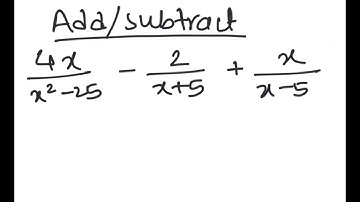 Add/subtract
4x/(x²-25) - 2/(x+5) + x/(x-5)